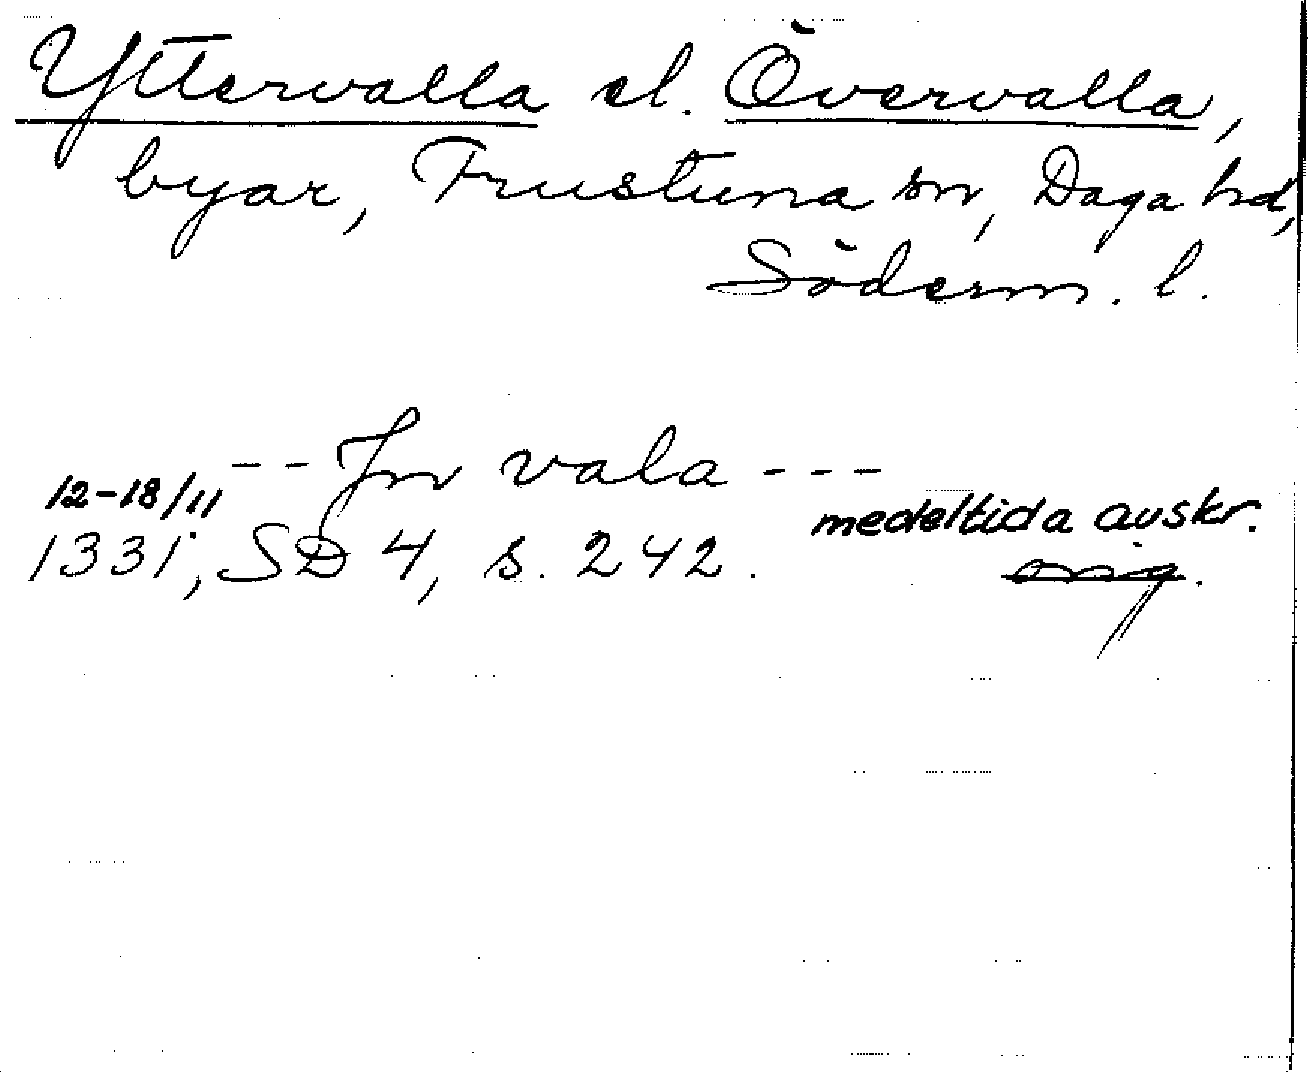 Yttervalla el. Övervalla,
byar, Frustuna sn, Daga hd,
Söderm. l.
-- In vala ---
12-18/11
medeltida avskr.
1331, SD 4, s. 242.
orig.